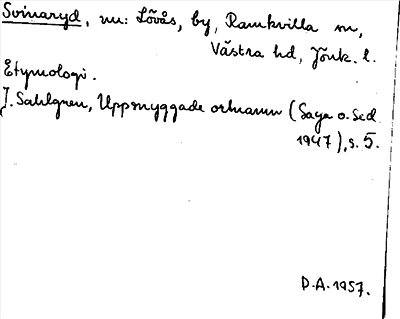 Svinaryd, nu: Lövås, by, Ramkvilla sn,
Västra hd, Jönk. l.
Etymologi.
J. Sahlgren, Uppsnyggade ortnamn (Saga o. Sed
1947), s. 5.
D.A. 1957.